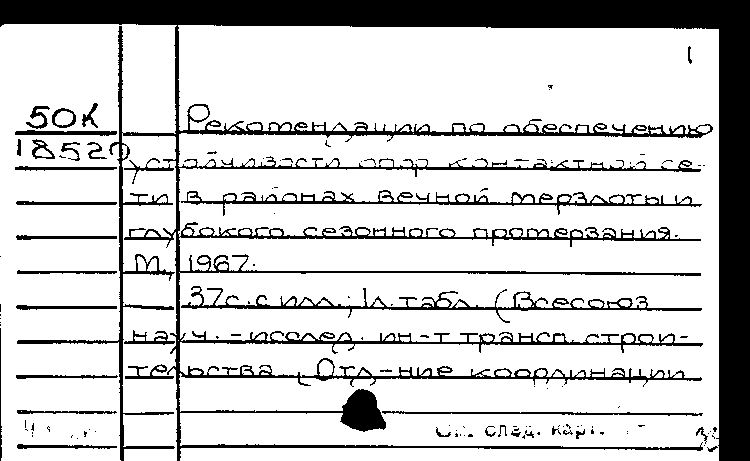 1
50К Рекомендации по обеспечению
18520 устойчивости опор контактной се-
ти в районах вечной мерзлоты и
глубокого сезонного промерзания.
М., 1967.
37с. с илл.; 1л. табл. (Всесоюз
науч.-исслед. ин-т трансп. строи-
тельства. Отд-ние координации
См. след. карт.